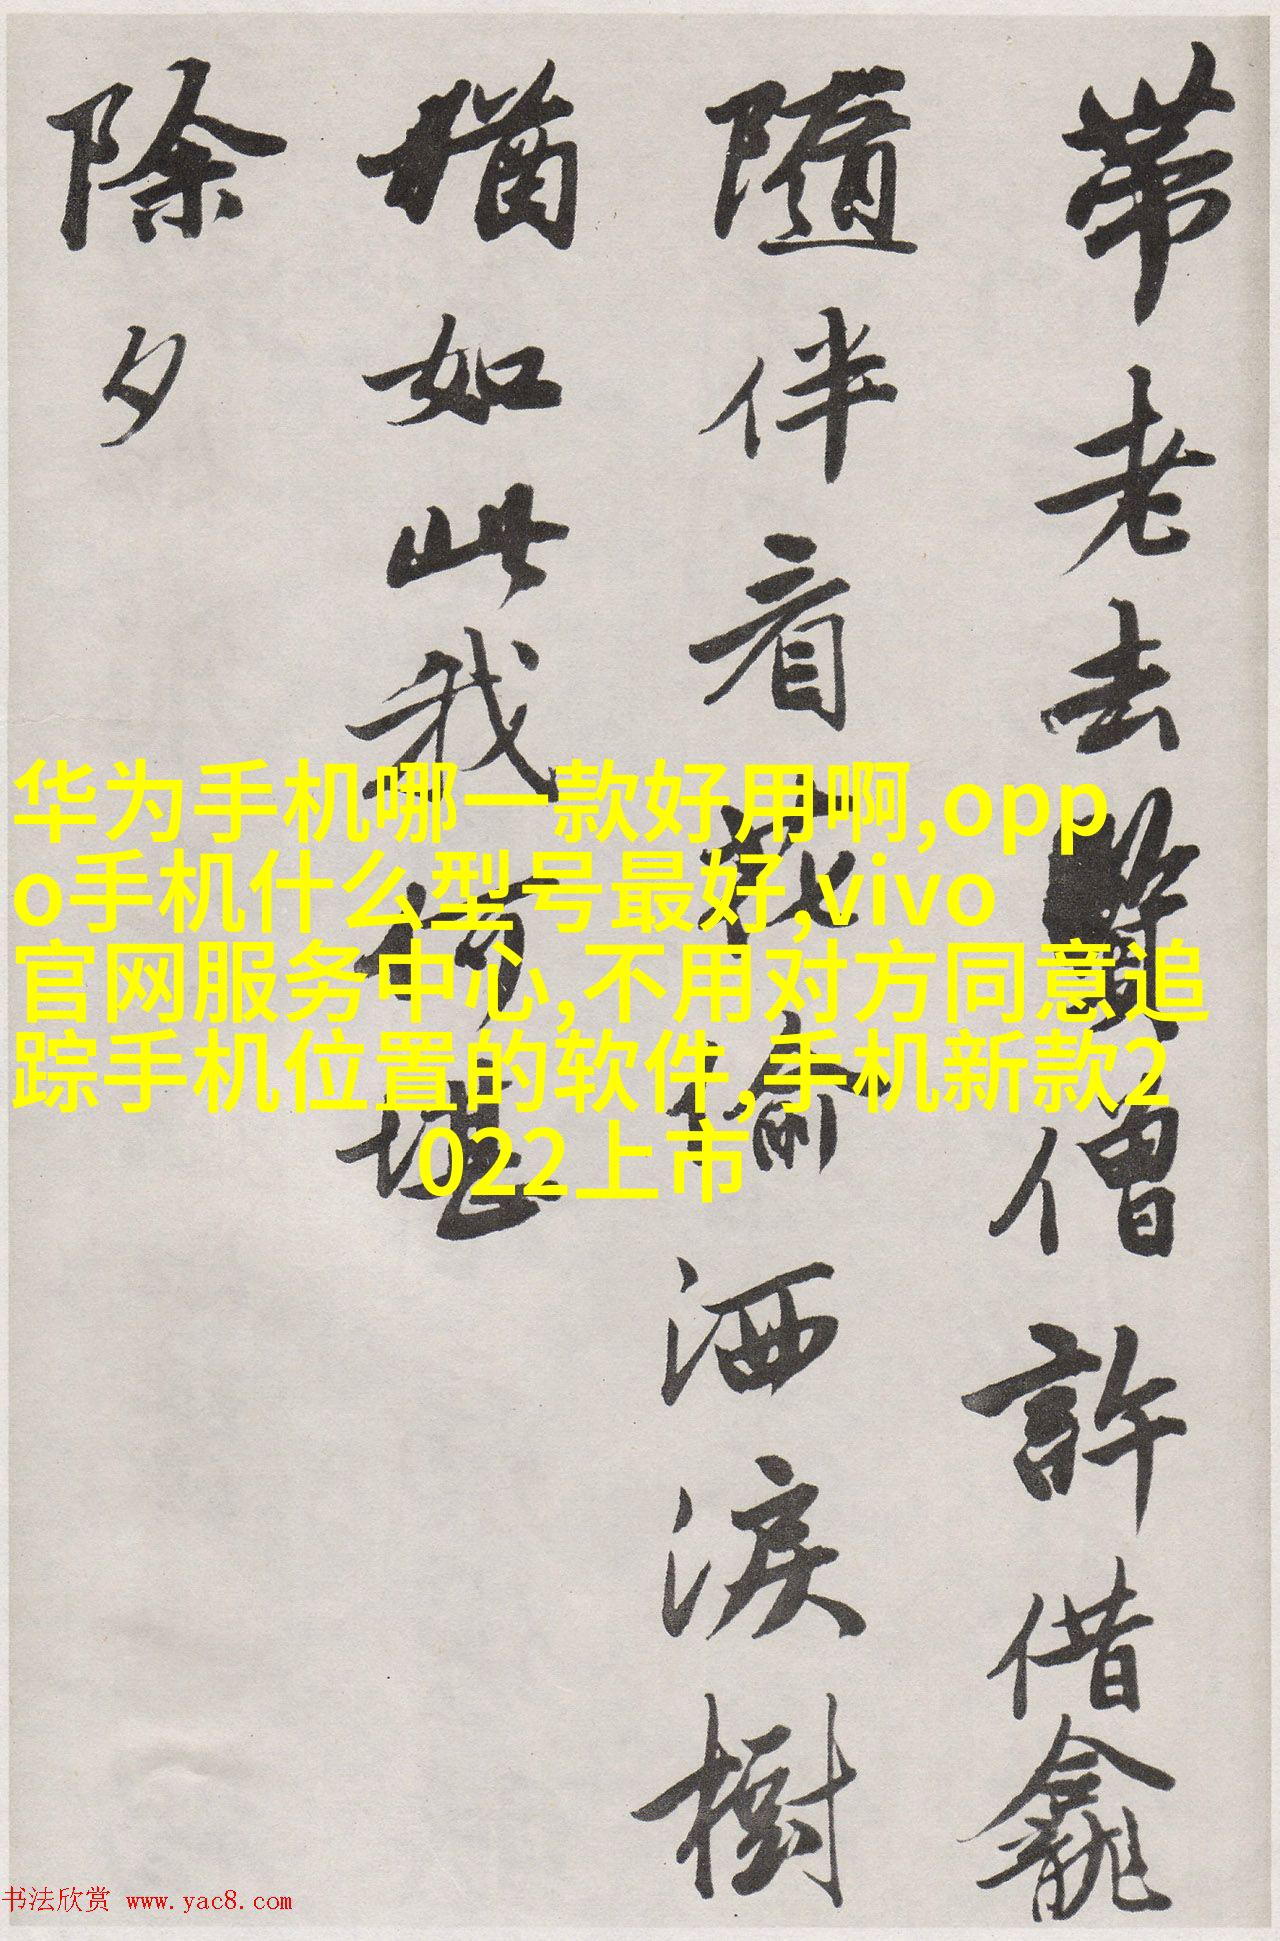 帶老去鬢僧許借龕
隨伴看花偷洒淚樹
猶如此我何堪
除夕
华为手机哪一款好用啊,opp
o手机什么型号最好,vivo
官网服务中心,不用对方同意追
踪手机位置的软件,手机新款2
022上市
书法欣赏 www.yac8.com